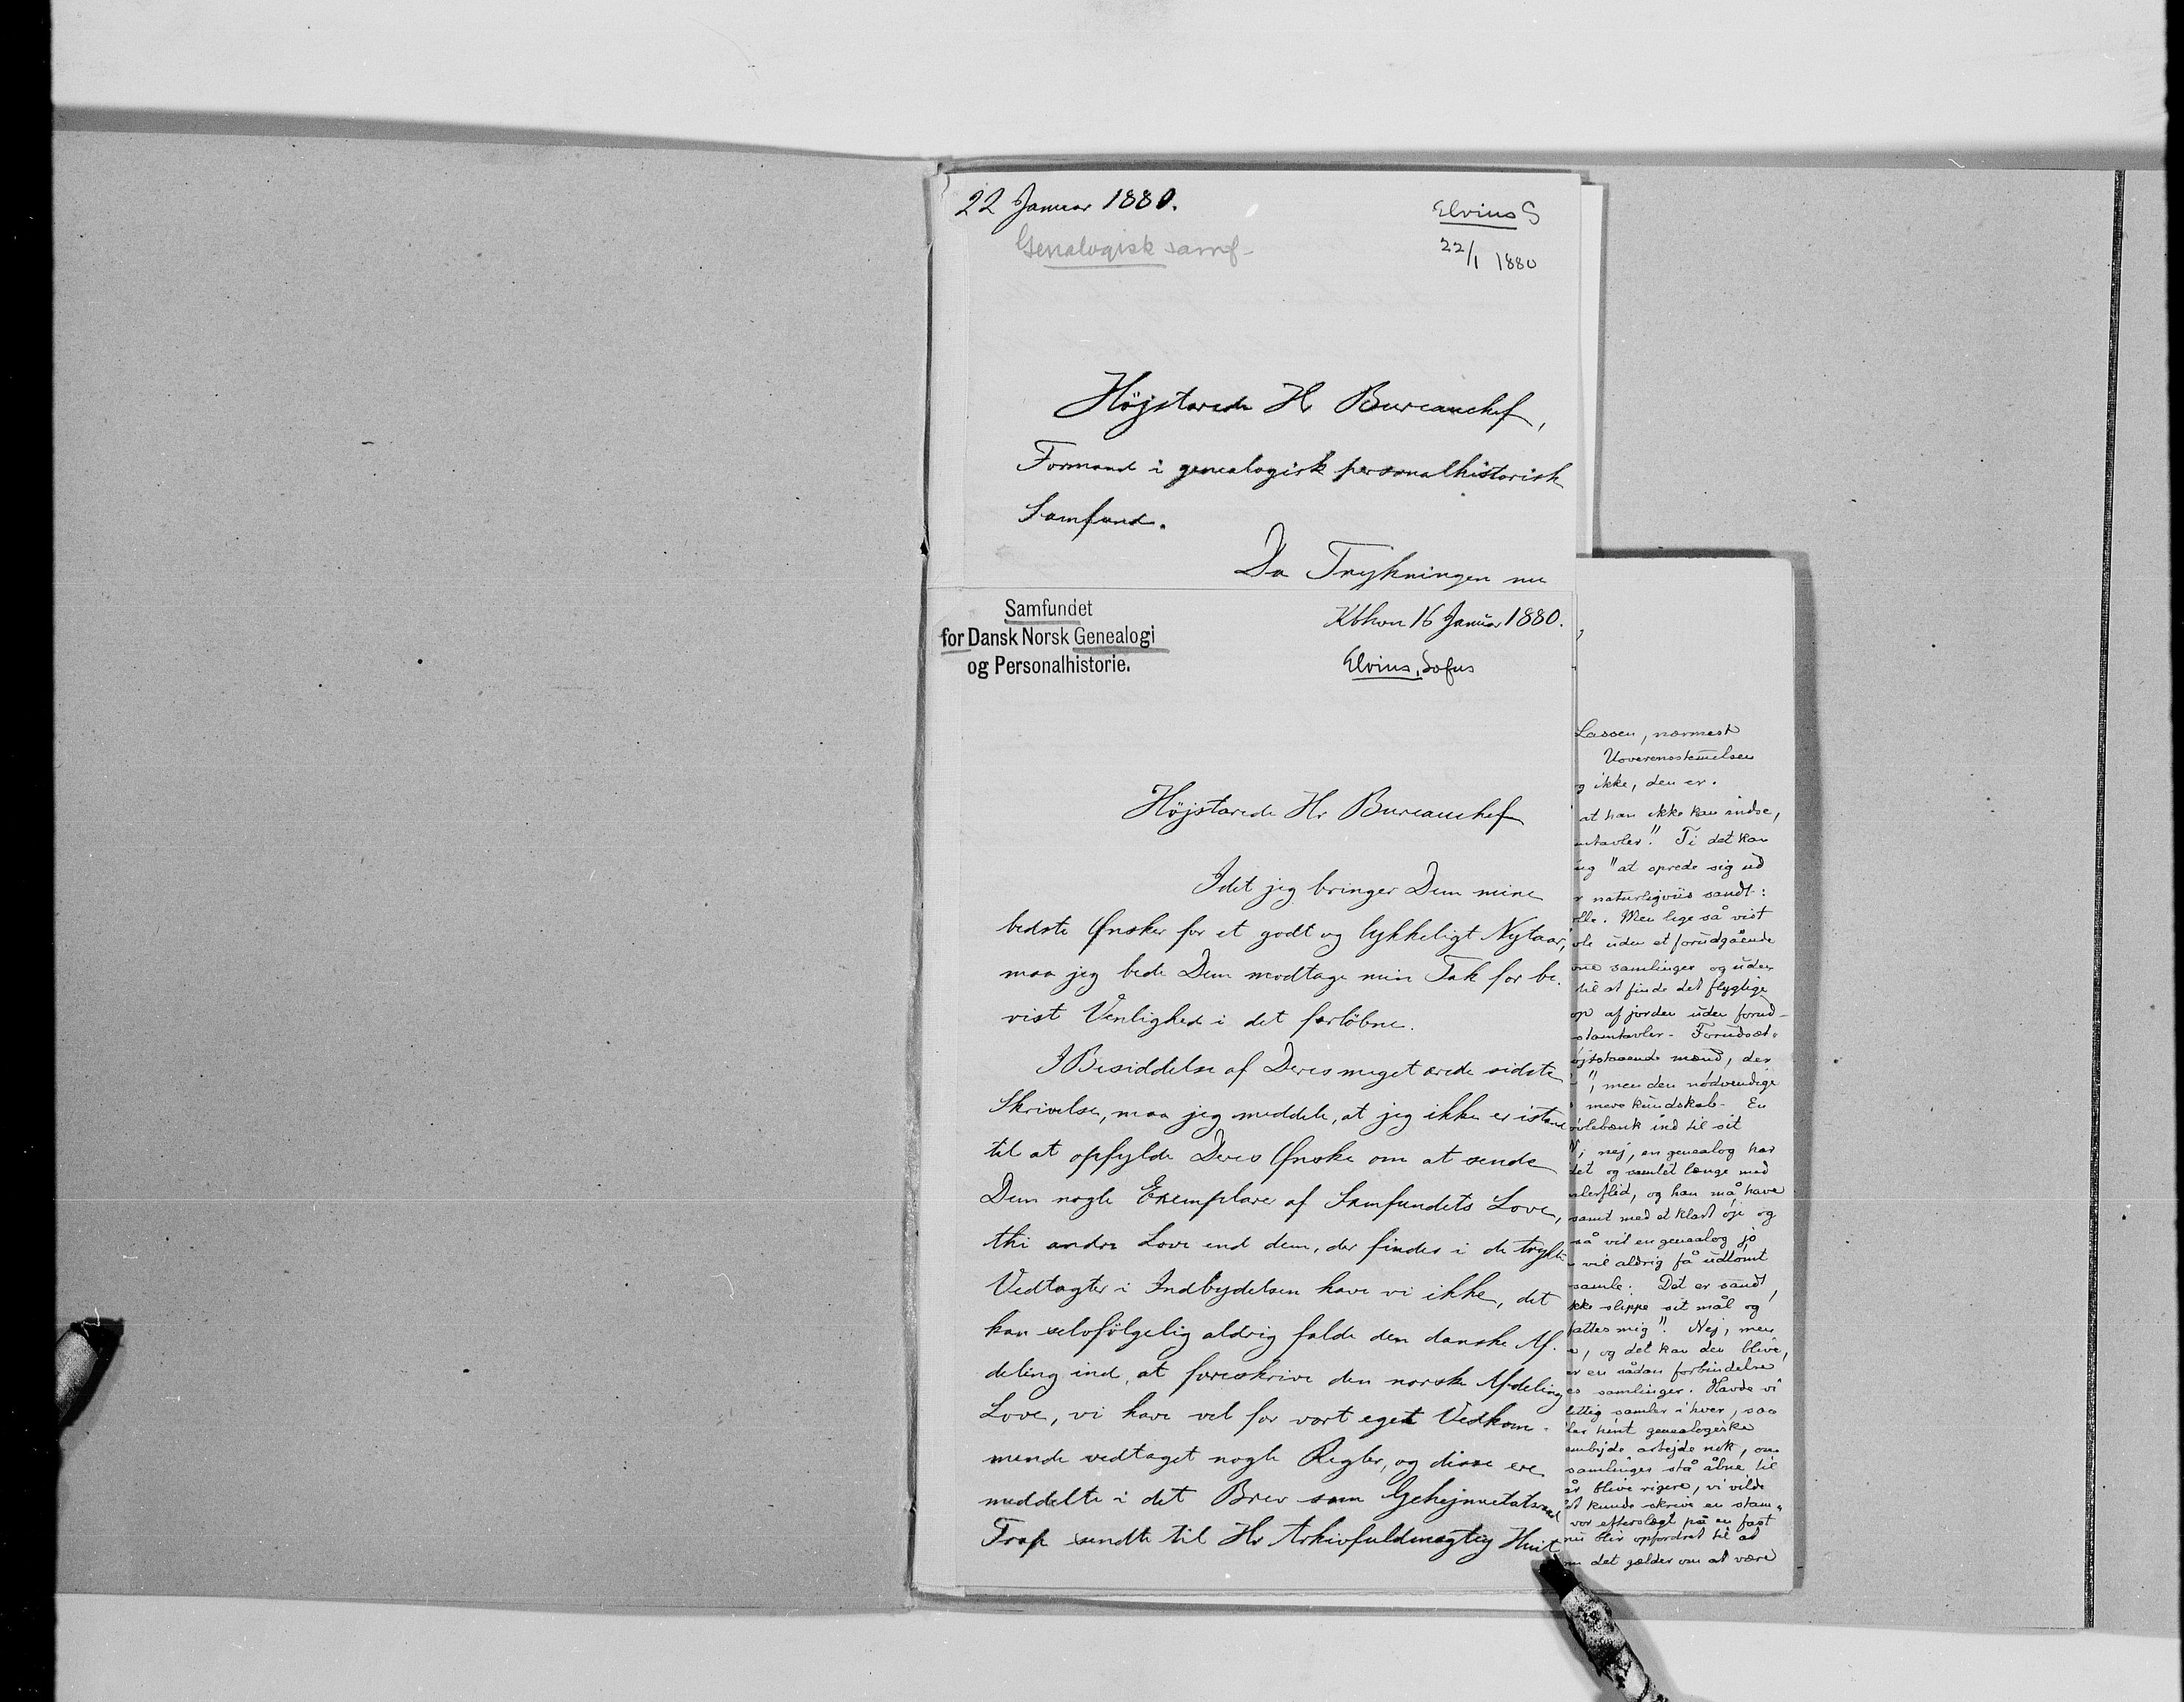 22 Januar 1880.
Elvius S
Genalogisk samf-
22/1 1880
Højstærede Hr Bureauchef,
Formand i genealogisk personalhistorisk
Samfund.
Da Trykningen nu
Samfundet
for Dansk Norsk Genealogi
og Personalhistorie.
Kbhvn 16 Januar 1880.
Elvius, Sofus
Højstærede Hr Bureauchef
Idet jeg bringer Dem mine
bedste Ønsker for et godt og lykkeligt Nytaar,
maa jeg bede Dem modtage min Tak for be-
vist Venlighed i det forløbne.
I Besiddelse af Deres meget ærede sidste
Skrivelse, maa jeg meddele, at jeg ikke er istand
til at opfylde Deres Ønske om at sende
Dem nogle Exemplarer af Samfundets Love,
thi andre Love end dem, der findes i de trykte
Vedtægter i Indbydelsen have vi ikke, det
kan selvfølgelig aldrig falde den danske Af-
deling ind, at foreskrive den norske Afdeling
Love, vi have vel for vort eget Vedkom-
mende vedtaget nogle Regler, og disse ere
meddelte i det Brev som Gehejmeetatsraad
Trap sendte til Hr Arkivfuldmægtig Huit
Lassen, nærmest
Uoverensstemmelsen
g ikke, den er.
at han ikke kan indse,
mtavler". Ti det kan
ig "at sprede sig ud
r naturligviis sandt:
olle. Men lige så vist
vle uden et forudgående
vne samlinger og uden
til at finde det flygtige
op af jorden uden forud-
stamtavler- Forudsæt-
øjtstaaende mænd, der
", men den nødvendige
mere kundskab- En
ovlebænk ind til sit
V; nej, en genealog har
det og samlet længe med
nlerflid, og han må have
samt med et klart øje og
så vil en genealog jo
vil aldrig få udtømt
samle. Det er sandt,
kke slippe sit mål og
fattes mig". Nej, men
e, og det kan den blive,
er en sådan forbindelse
es samlinger. Havde vi
littig samler i hver, saa
ler hint genealogiske
embyde arbejde nok, om
samlinger stå åbne til
år blive rigere, vi vilde
et kunde skrive en stam-
vor efterslægt på en fast
nu blir opfordret til at
det gælder om at være